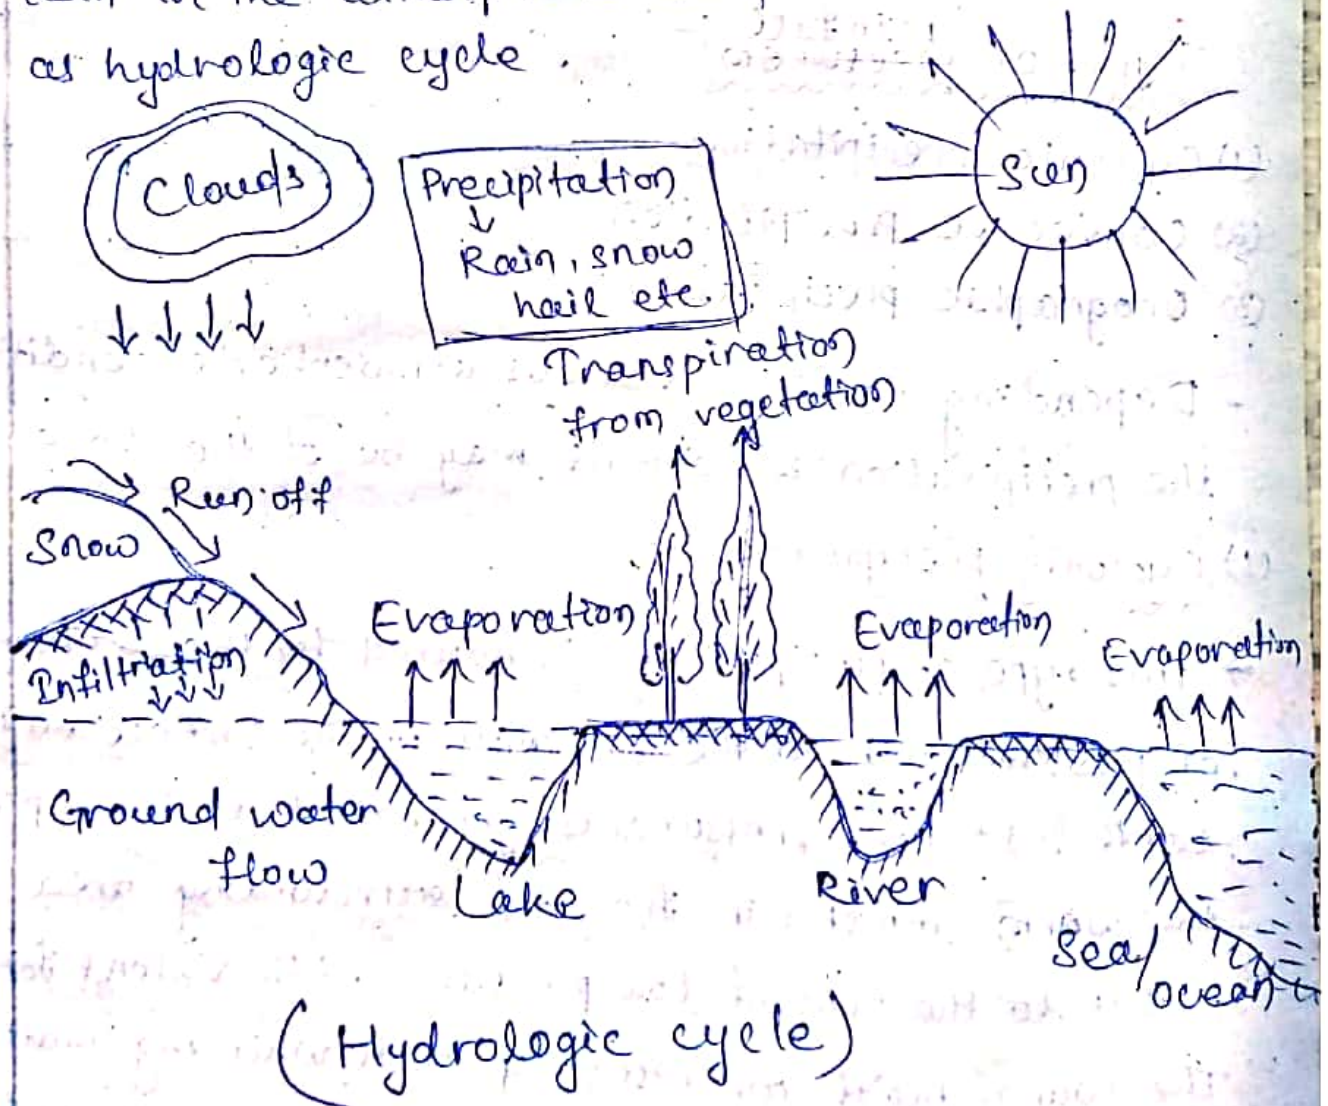 as hydrologic cycle.
Clouds
Precipitation
↓
Rain, snow
hail etc.
Sun
Transpiration
from vegetation
Run off
Snow
Evaporation
Evaporation
Evaporation
Infiltriation
Ground water
flow
Lake
River
Sea/
ocean
(Hydrologic cycle)